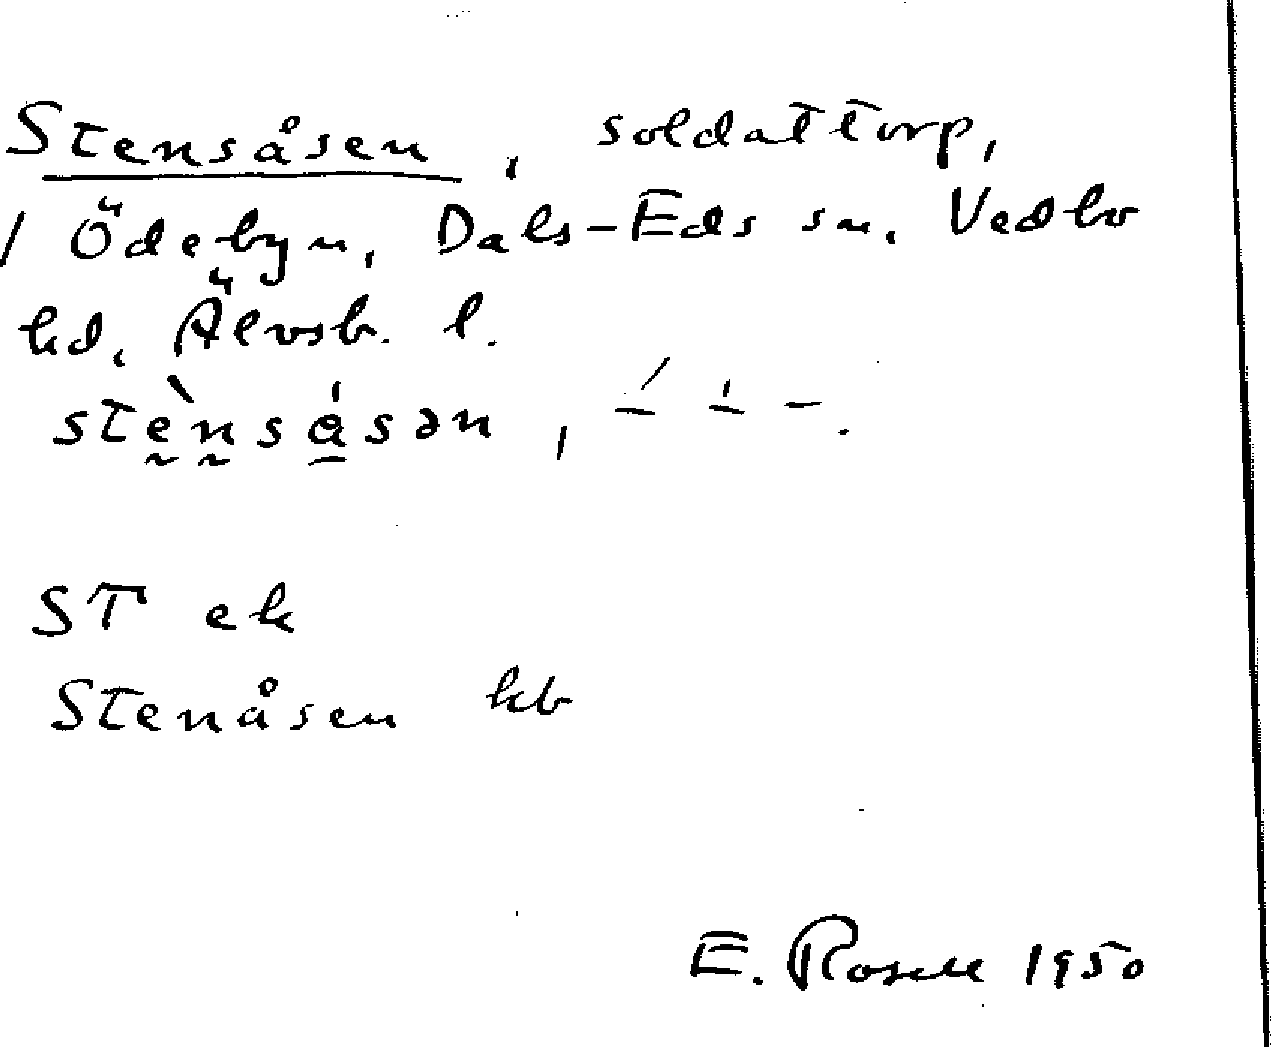 Stensåsen, soldattorp,
/ Ödebyn, Dals-Eds sn. Vedbo
hd, Älvsb. l.
stènsåsən,
ST ek
Stenåsen kb
E. Rosell 1950